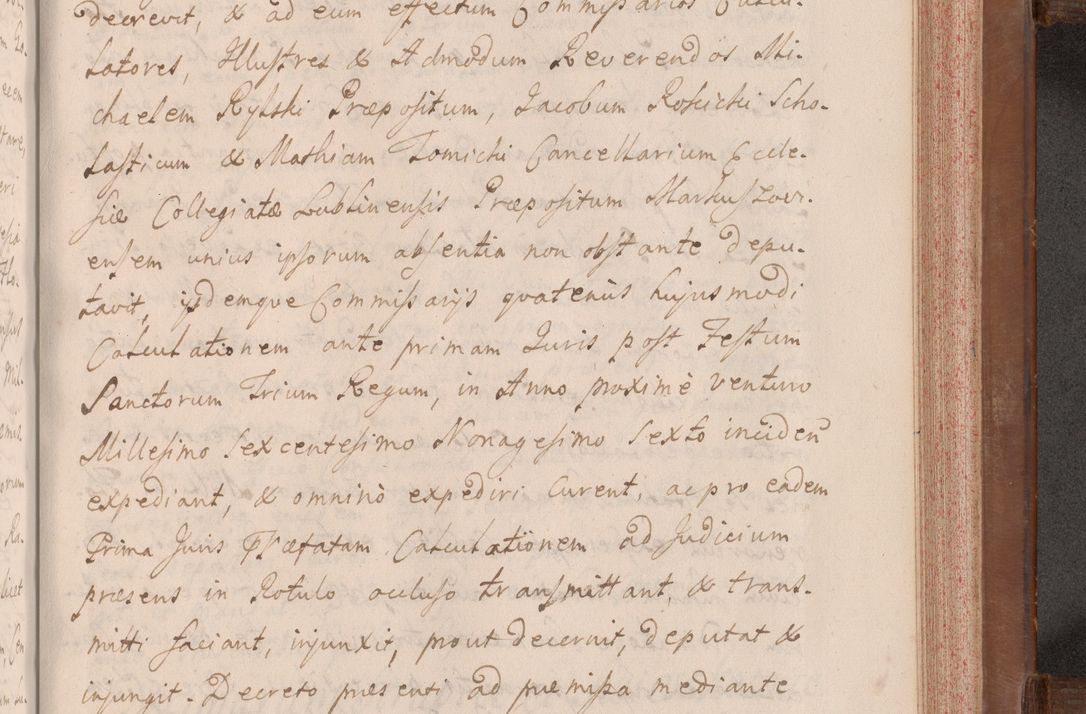 decrevit, & ad eum effectum Commissarios Calcu-
latores, Illustres & Admodum Reverendos Mi-
chaelem Rylski Præpositum, Jacobum Roscicki Scho-
lasticum & Mathiam Tomicki Cancellarium Eccle-
siæ Collegiatæ Lublinensis Præpositum Markuszovi-
ensem unius ipsorum absentia non obstante depu-
tavit, ijsdemque Commissarijs quatenus hujusmodi
Calculationem ante primam Juris post Festum
Sanctorum Trium Regum, in Anno proximè venturo
Millesimo Sexcentesimo Nonagesimo Sexto inciden
expediant, & omninò expediri curent, ac pro eadem
Prima Juris Præfatam Calculationem ad Judicium
præsens in Rotulo occluso transmittant, & trans-
mitti faciant, injunxit, prout decernit, deputat &
injungit. Decreto præsenti ad præmissa mediante